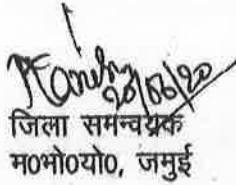 20/06/20
जिला समन्वयक
म०भो०यो०, जमुई